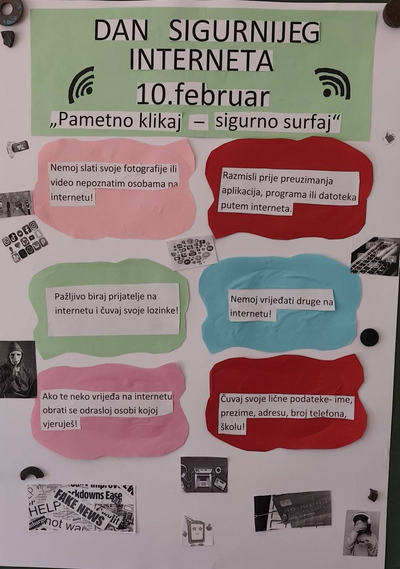 DAN SIGURNIJEG
INTERNETA
10.februar
„Pametno klikaj – sigurno surfaj“
Nemoj slati svoje fotografije ili
video nepoznatim osobama na
internetu!
Razmisli prije preuzimanja
aplikacija, programa ili datoteka
putem interneta.
Pažljivo biraj prijatelje na
internetu i čuvaj svoje lozinke!
Nemoj vrijeđati druge na
internetu!
Ako te neko vrijeđa na internetu
obrati se odrasloj osobi kojoj
vjeruješ!
Čuvaj svoje lične podateke- ime,
prezime, adresu, broj telefona,
školu!
ckdowns Ease
FAKE NEWS
HELP
not wa